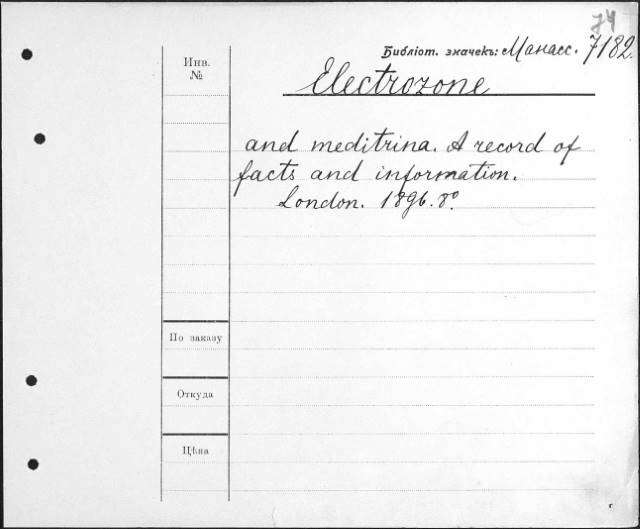 74
Библіот. значекъ: Манасс. 7182.
Инв.
№
Electrozone
and meditrina. A record of
facts and information.
London. 1896. 8°.
По заказу
Откуда
Цѣна
г